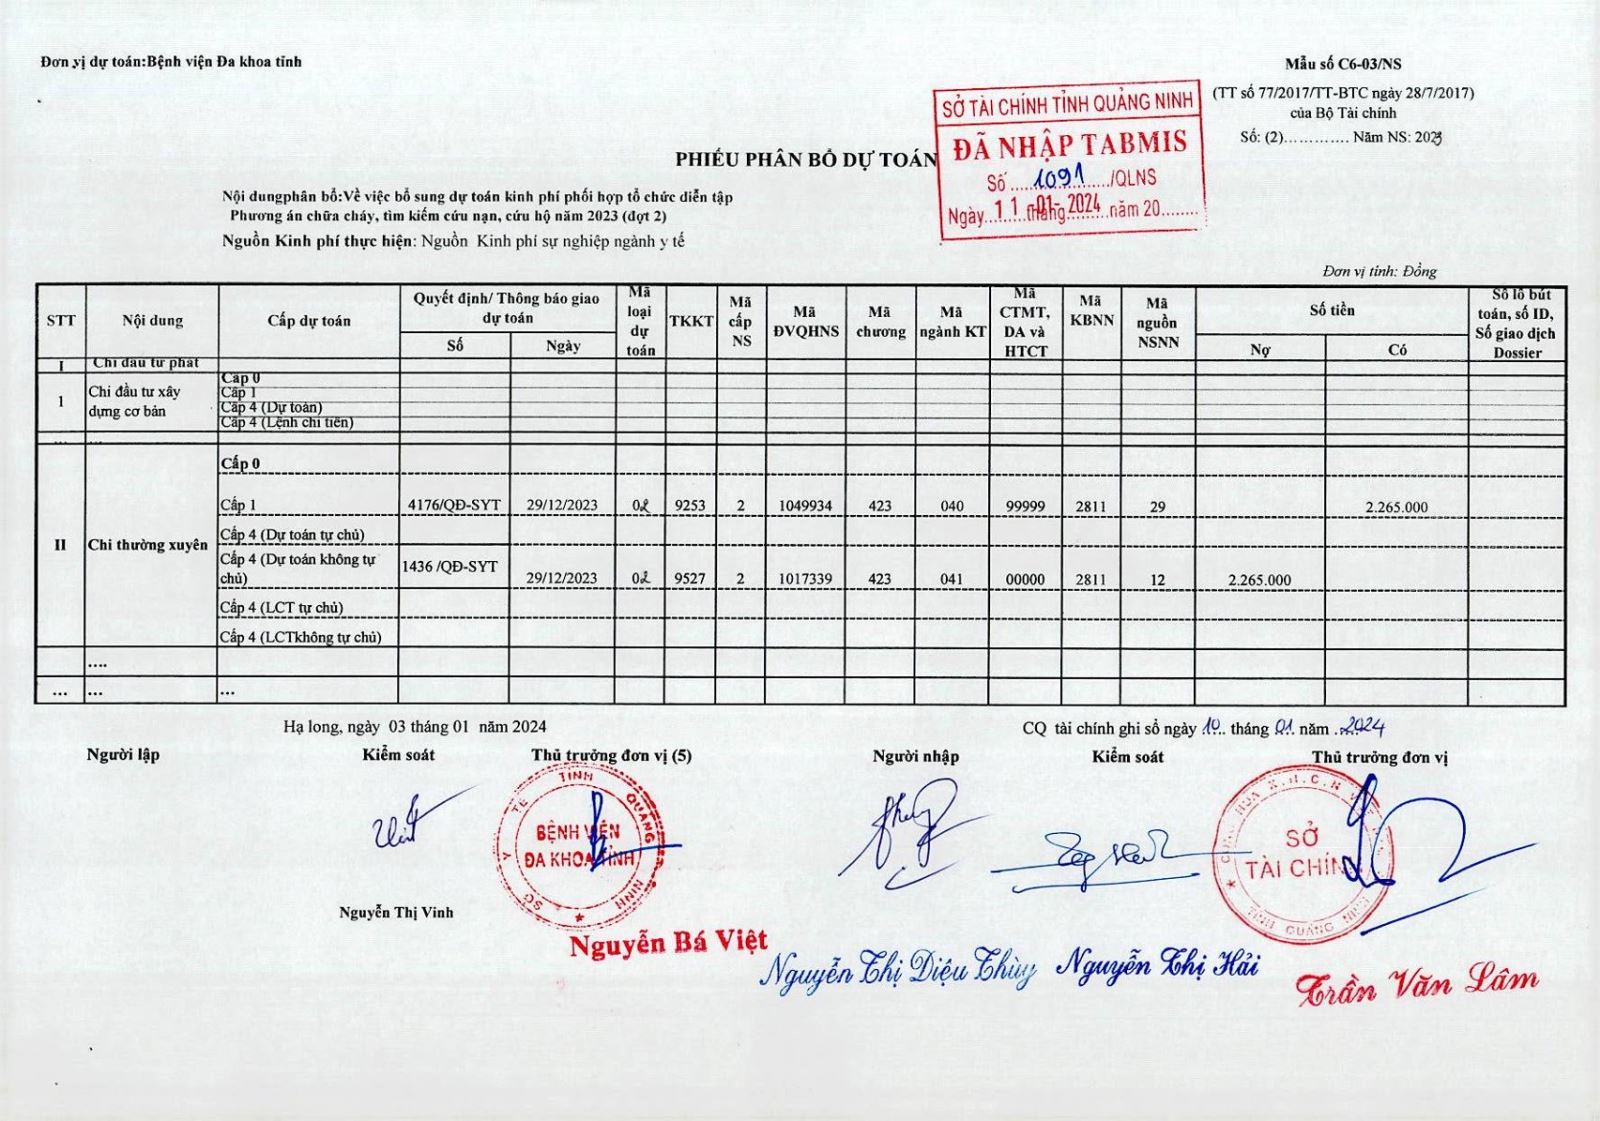 Đơn vị dự toán:Bệnh viện Đa khoa tỉnh
Mẫu số C6-03/NS
(TT số 77/2017/TT-BTC ngày 28/7/2017)
của Bộ Tài chính
Số: (2)............ Năm NS: 2023
SỞ TÀI CHÍNH TỈNH QUẢNG NINH
ĐÃ NHẬP TABMIS
Số ....1091..../QLNS
Ngày..11..tháng..-01-2024..năm 20........
PHIẾU PHÂN BỔ DỰ TOÁN
Nội dungphân bổ:Về việc bổ sung dự toán kinh phí phối hợp tổ chức diễn tập
Phương án chữa cháy, tìm kiếm cứu nạn, cứu hộ năm 2023 (đợt 2)
Nguồn Kinh phí thực hiện: Nguồn Kinh phí sự nghiệp ngành y tế
Đơn vị tính: Đồng
STT Nội dung Cấp dự toán Quyết định/ Thông báo giao dự toán Mã loại dự toán TKKT Mã cấp NS Mã ĐVQHNS Mã chương Mã ngành KT Mã CTMT, DA và HTCT Mã KBNN Mã nguồn NSNN Số tiền Số lô bút toán, số ID, Số giao dịch Dossier
Số Ngày Nợ Có
I Chi đầu tư phát
1 Chi đầu tư xây dựng cơ bản
Cấp 0
Cấp 1
Cấp 4 (Dự toán)
Cấp 4 (Lệnh chi tiền)
... ...
II Chi thường xuyên
Cấp 0
Cấp 1 4176/QĐ-SYT 29/12/2023 02 9253 2 1049934 423 040 99999 2811 29 2.265.000
Cấp 4 (Dự toán tự chủ)
Cấp 4 (Dự toán không tự chủ) 1436 /QĐ-SYT 29/12/2023 02 9527 2 1017339 423 041 00000 2811 12 2.265.000
Cấp 4 (LCT tự chủ)
Cấp 4 (LCTkhông tự chủ)
....
... ... ...
Hạ long, ngày 03 tháng 01 năm 2024
CQ tài chính ghi sổ ngày .10.. tháng .01. năm ..2024
Người lập Kiểm soát Thủ trưởng đơn vị (5) Người nhập Kiểm soát Thủ trưởng đơn vị
SỞ Y TẾ TỈNH QUẢNG NINH
BỆNH VIỆN
ĐA KHOA TỈNH
CỘNG HÒA X.H.C.N VIỆT NAM
SỞ
TÀI CHÍNH
TỈNH QUẢNG NINH
Nguyễn Thị Vinh
Nguyễn Bá Việt
Nguyễn Thị Diệu Thùy
Nguyễn Thị Hải
Trần Văn Lâm